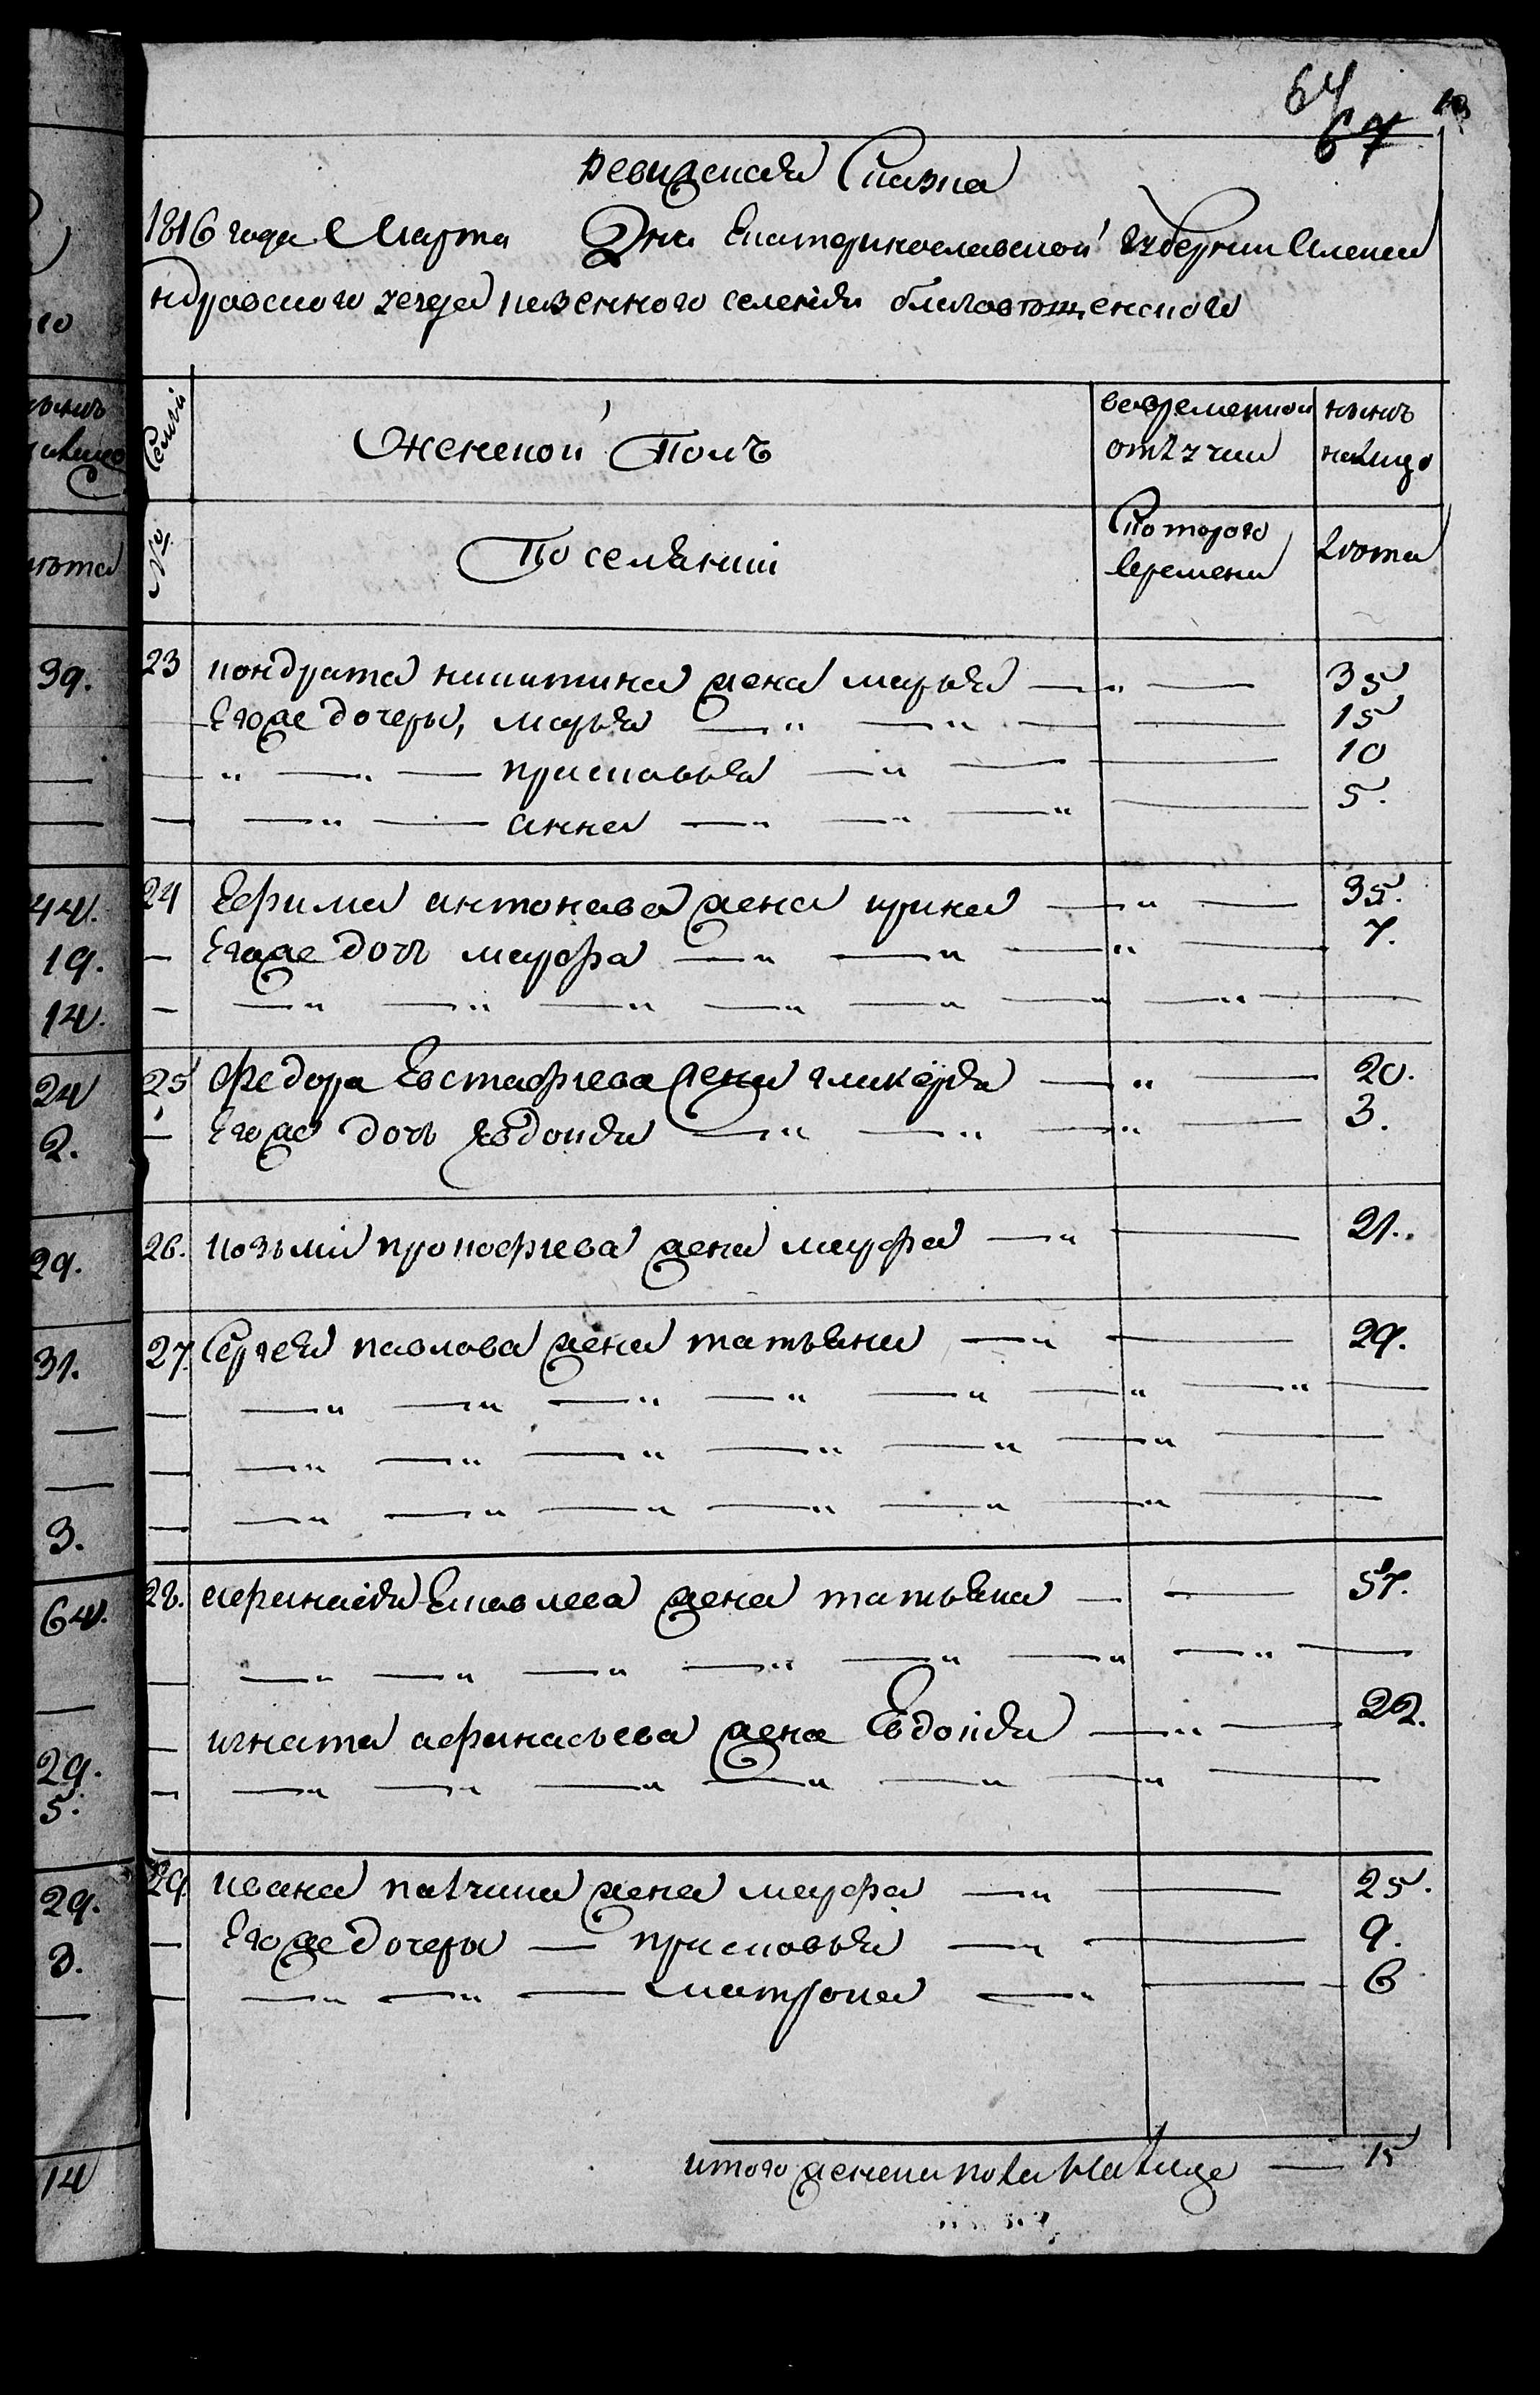 64
67
ревизская Сказка
1816 года Марта Дня Екатеринославской губернии Алекса
ндровского уезда казенного селения благовещенского
Семьи
Женской Полъ
вовременной отлучки
ныне налицо
№
Поселянки
Скоторого времени
Лета
23 кондрата никитина жена марья — 35
Егоже дочеры, марья — 15
— присковья — 10
— анна — 5.
24 Ефима антонава жена ирина — 35.
Егоже дочь марфа — 7.
25 Федора Евстафиева жена гликерия — 20.
Егоже дочь Евдокия — 3.
26. козьми прокофиева жена марфа — 21.
27. Сергея павлова жена татьяна — 29.
28. афанасия Ековлева жена татьяна — 57.
игната афанасьева жена Евдокия — 22.
29 ивана жена марфа — 25.
Егоже дочеры — присковья — 9.
— матрона — 6
итого женска пола налице — 15
39.
44.
19.
14.
24
2.
29.
31.
3.
64.
29.
5.
29.
3.
14